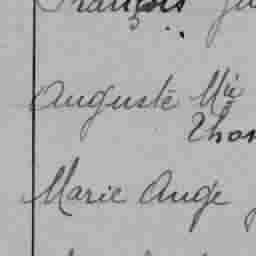 François
Auguste Mie
Thom
Marie Ange